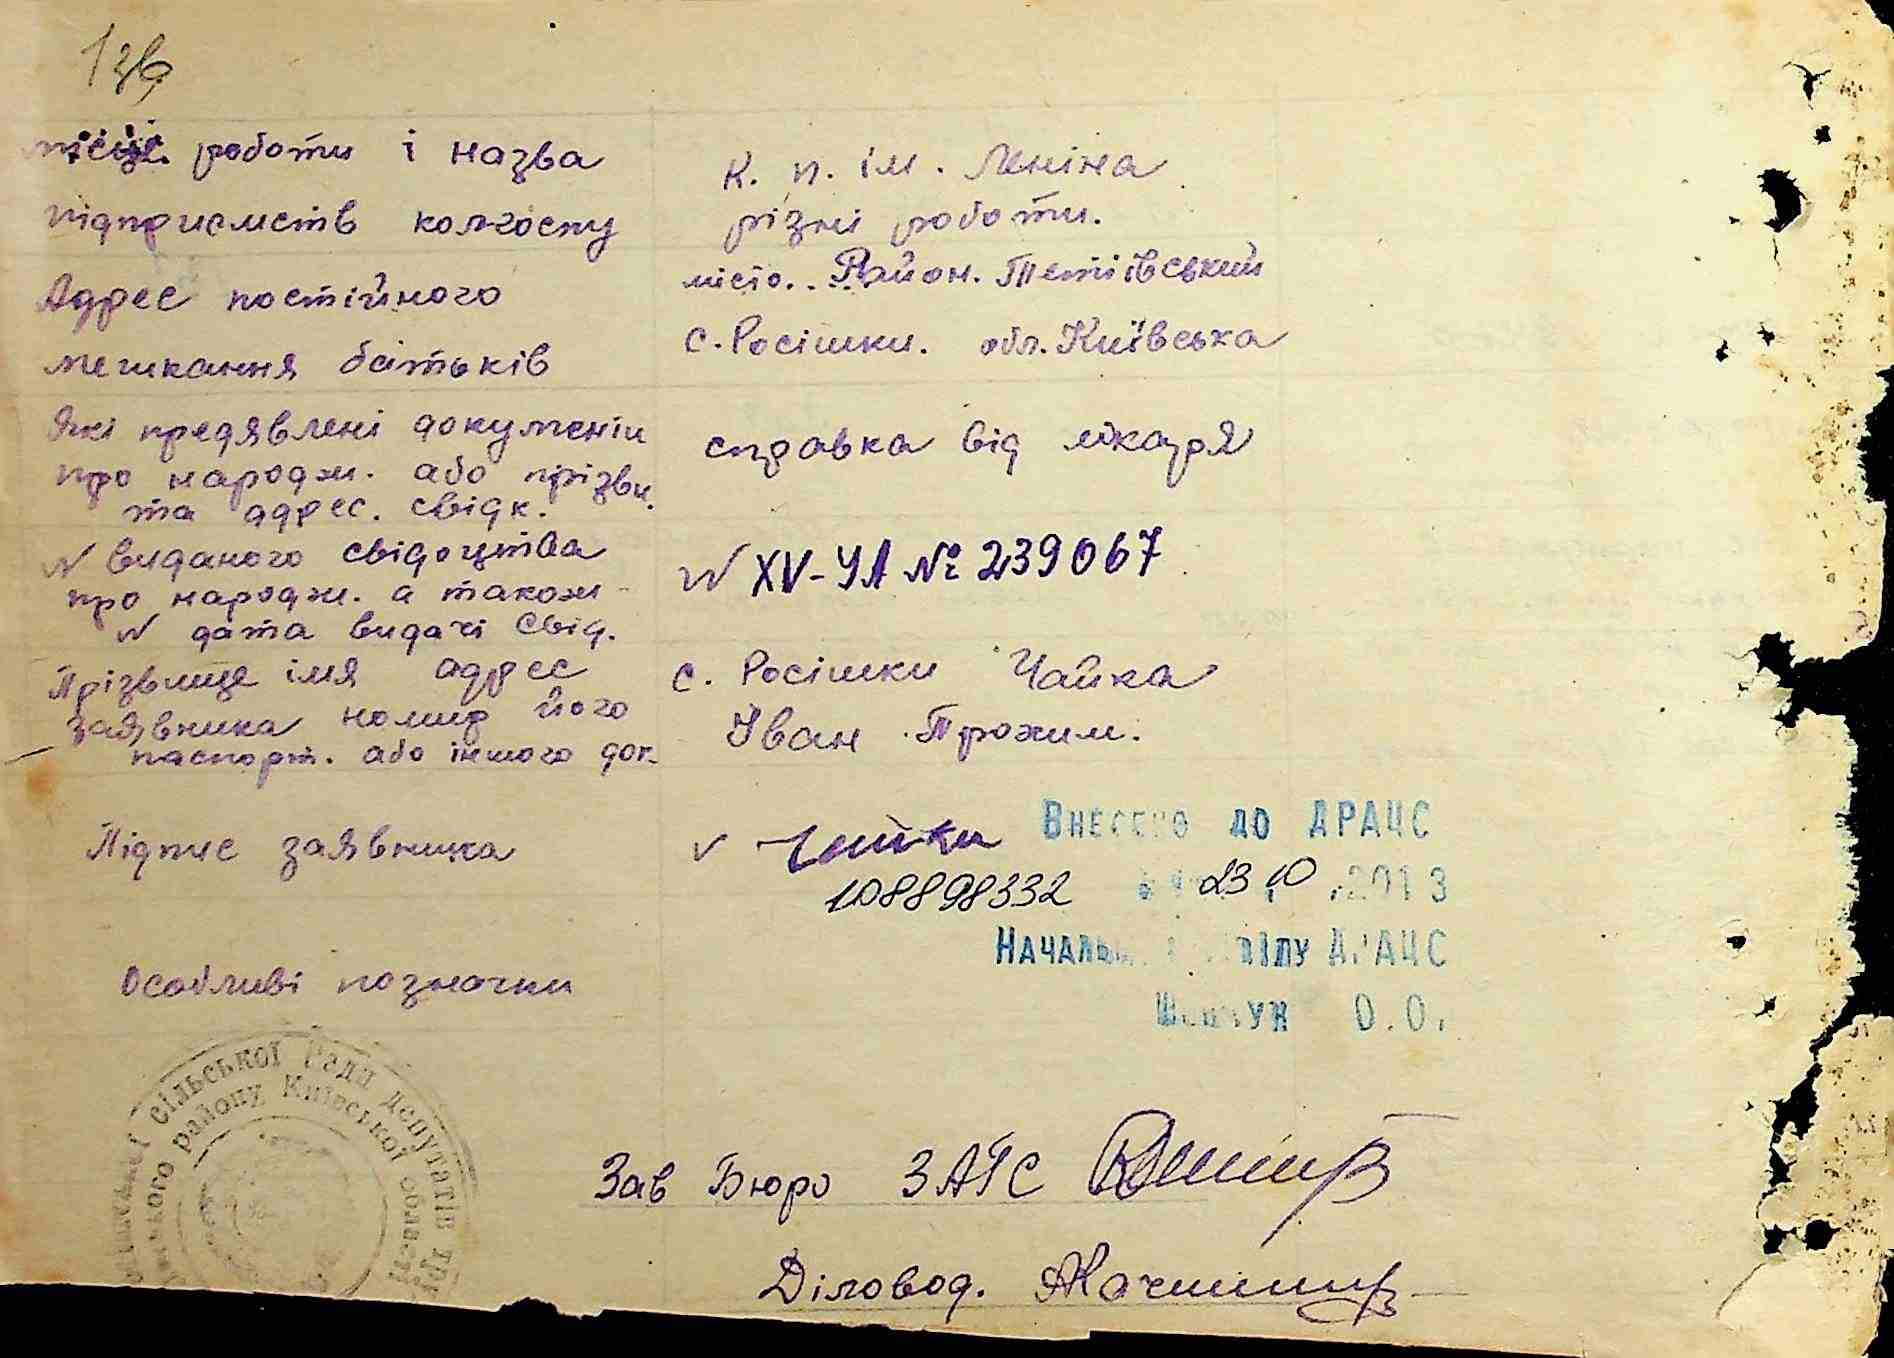 місце роботи і назва
підприємств колгоспу
к. п. ім. Леніна
різні роботи.
Адрес постійного
мешкання батьків
місто.. Район. Тетіївський
с. Росішки. обл. Київська
Які предявлені документи
про народж. або прізвищ.
та адрес. свідк.
справка від лікаря
N виданого свідоцтва
про народж. а також
N дата видачі свід.
N XV-УА № 239067
Прізвище імя адрес
заявника номир його
паспорт. або іншого док.
с. Росішки Чайка
Іван Трохим.
Підпис заявника
v Чайка
Внесено до ДРАЦС
108898332 23 10 .2013
Начальник відділу ДРАЦС
О.О.
Особливі позначки
сільської Ради депутатів
району Київської області
Зав Бюро ЗАГС
Діловод.